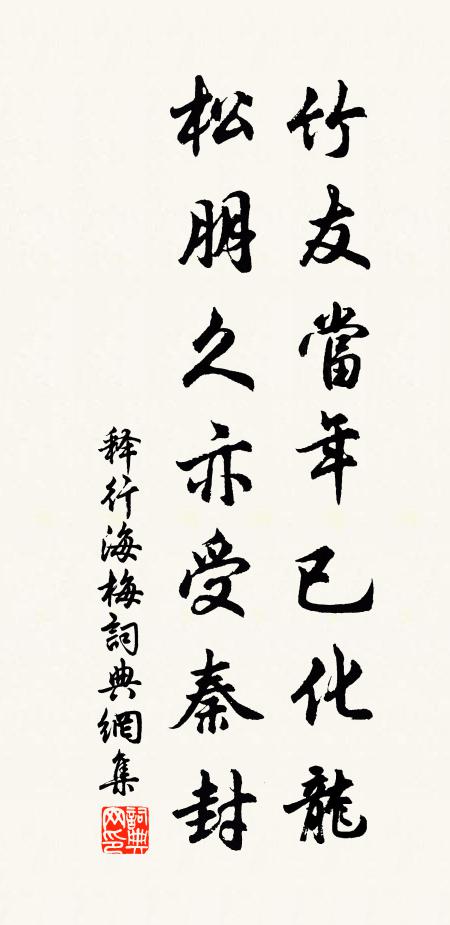 竹友當年已化龍
松朋久亦受秦封
释行海梅詞典網集
詞典網印